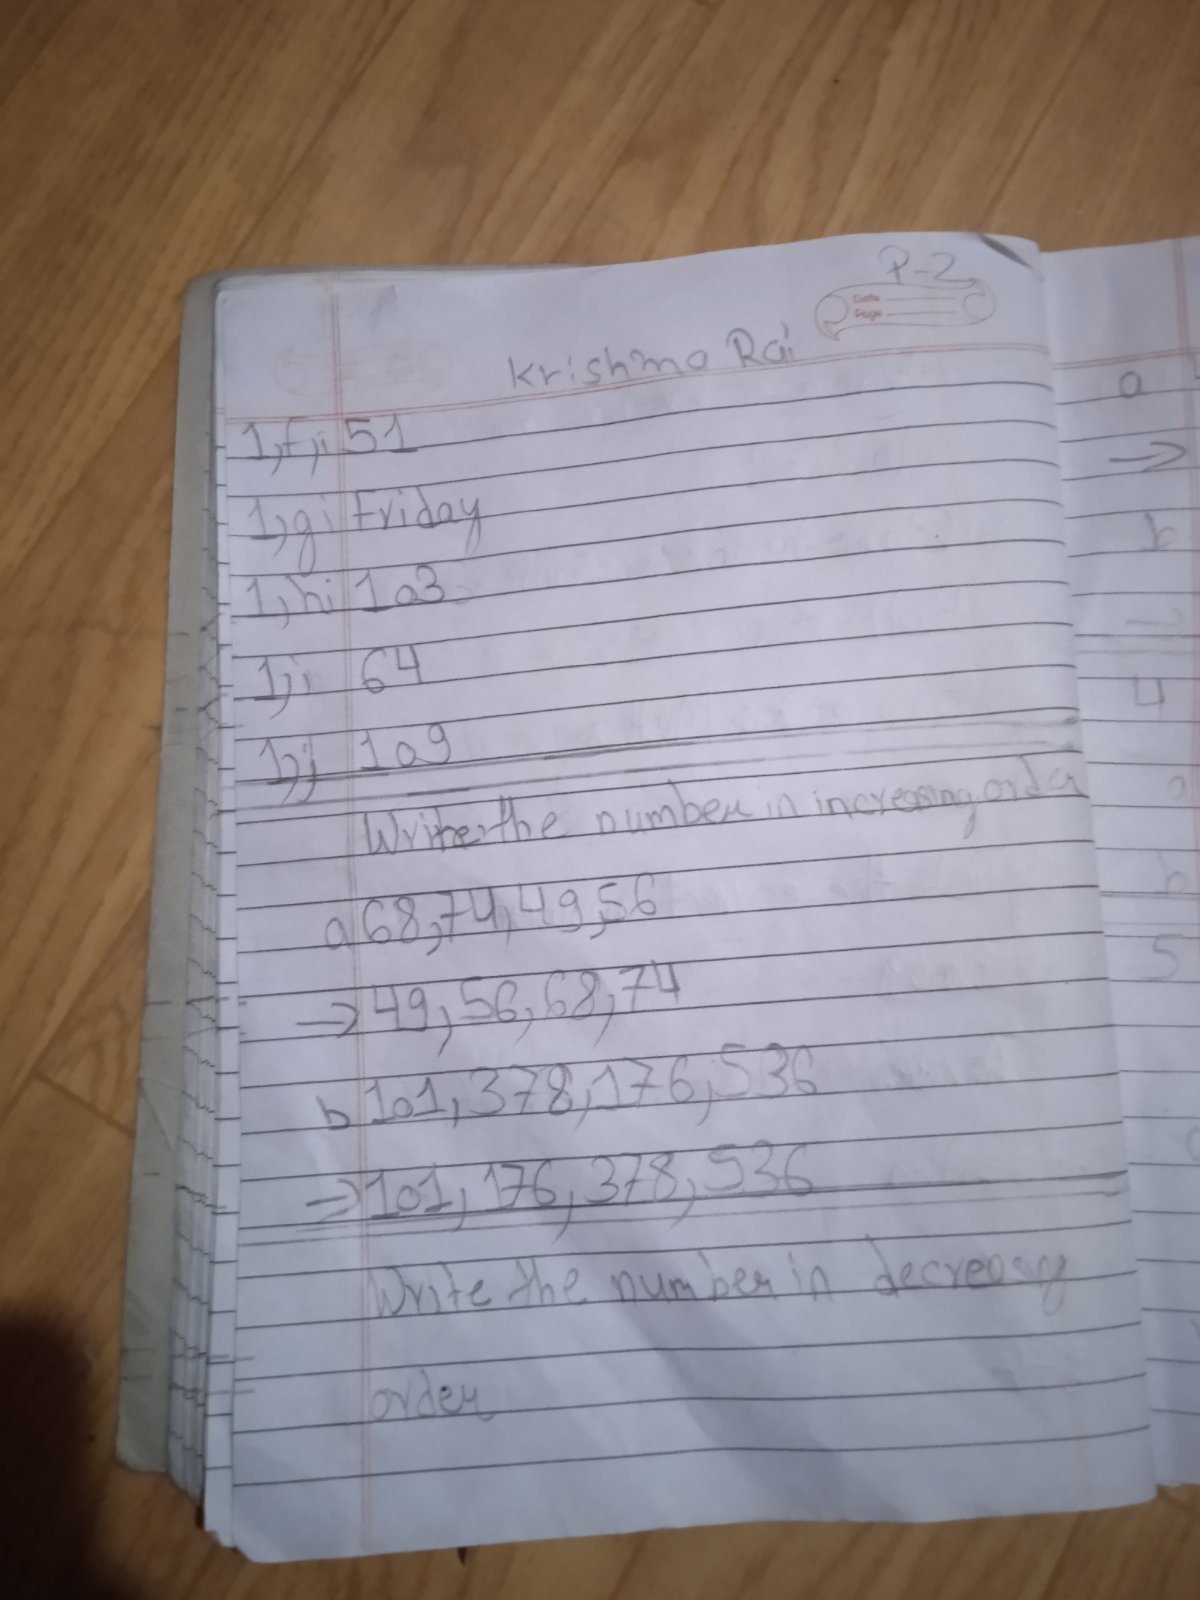 P-2
Date
Page
Krishma Rai
1,f,i 51
1,gi Friday
1,hi 103
1,i 64
1,j 109
Write the number in increasing order
a 68,74,49,56
→ 49,56,68,74
b 101,378,176,536
→ 101,176,378,536
Write the number in decreasing
order
a
→
b
4
a
b
5